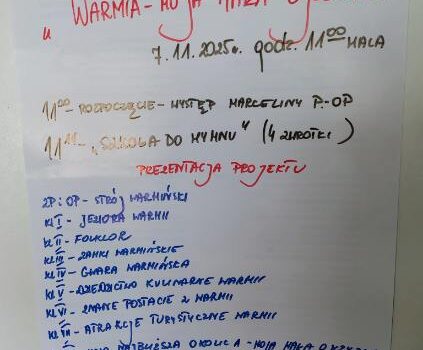 " WARMIA - MOJA MAŁA
7.11.2025r. godz. 11⁰⁰ HALA
11⁰⁰ - ROZPOCZĘCIE - WYSTĘP MARCELINY P.-OP
11¹¹ - „SZKOŁA DO HYMNU" (4 ZWROTKI)
PREZENTACJA PROJEKTU
2P i OP - STRÓJ WARMIŃSKI
KL I - JEZIORA WARMII
KL II - FOLKLOR
KL III - ZAMKI WARMIŃSKIE
KL IV - GWARA WARMIŃSKA
KL V - DZIEDZICTWO KULINARNE WARMII
KL VI - ZNANE POSTACIE Z WARMII
KL VII - ATRAKCJE TURYSTYCZNE WARMII
NAJBLIŻSZA OKOLICA - MOJA MAŁA